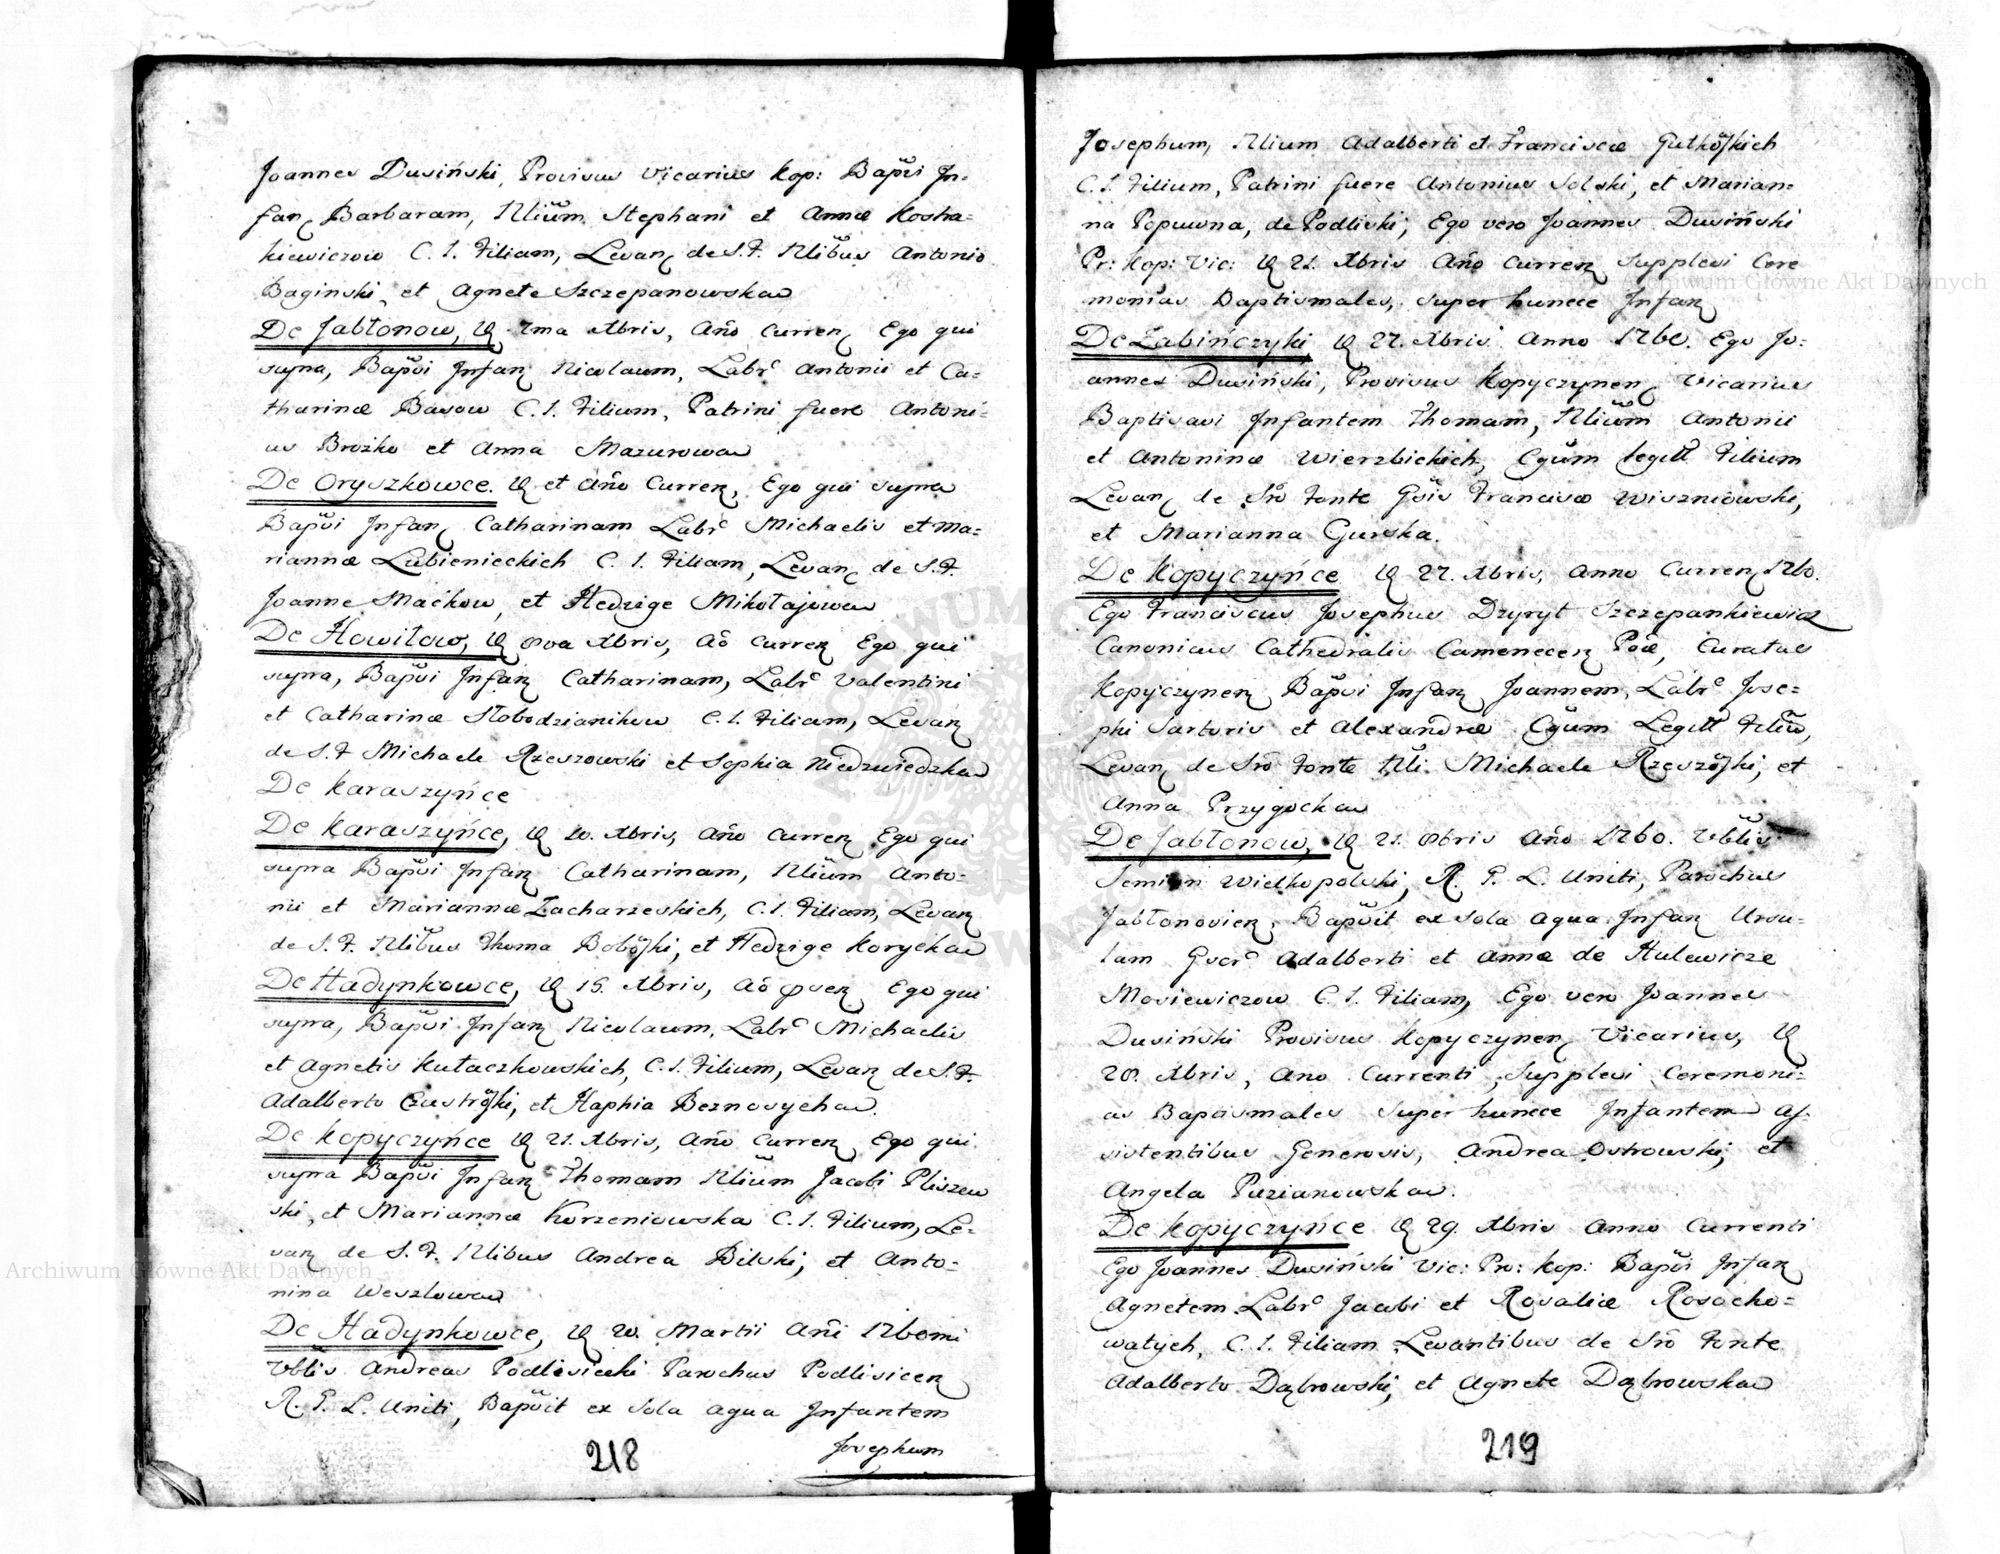 Joannes Dusiński, Provisus Vicarius Kop: Bapvi In-
fan Barbaram, Nlium Stephani et Annæ Kosha-
kiewiczow C. L. Filiam, Levan de S. F. Nlibus Antonio
Baginski, et Agnete Szczepanowska
De Jabłonow, D 7ma Xbris, Año Curren Ego qui
supra, Bapvi Infan Nicolaum, Labr Antonii et Ca-
tharinæ Basow C. L. Filium, Patrini fuere Antoni-
us Brozko et Anna Mazurowa
De Oryszkowce. D et Año Curren, Ego qui supra
Bapvi Infan Catharinam Labr Michaelis et Ma-
riannæ Lubienieckich C. L. Filiam, Levan de S. F.
Joanne Maćkow, et Hedvige Mikołajowa
De Howiłow, D 8va Xbris, Aõ Curren Ego qui
supra, Bapvi Infan Catharinam, Labr Valentini
et Catharinæ Słobodzianikow C. L. Filiam, Levan
de S. F. Michaele Rzeszowski et Sophia Niedzwiedzka
De Karaszyńce
De Karaszyńce, D 10. Xbris, Año Curren Ego qui
supra Bapvi Infan Catharinam, Nlium Anto-
nii et Mariannæ Zacharzeskich, C. L. Filiam, Levan
de S. F. Nlibus Thoma Boboski, et Hedvige Korycka
De Hadynkowce, D 15. Xbris, Aõ Curren Ego qui
supra, Bapvi Infan Nicolaum, Labr Michaelis
et Agnetis Kułaczkowskich, C. L. Filium, Levan de S. F.
Adalberto Czustroski, et Haphia Beznosycha.
De Kopyczyńce D 21. Xbris, Año Curren Ego qui
supra Bapvi Infan Thomam Nlium Jacobi Pliszew
ski, et Mariannæ Korzeniowska C. L. Filium, Le-
van de S. F. Nlibus Andrea Bilski, et Anto-
nina Weszlowa
De Hadynkowce, D 20. Martii Añi 176omi
Vblis Andreas Podlisiecki Parochus Podlisicen
R. G. L. Uniti, Bapvit ex Sola aqua Infantem
Josephum
218
Josephum, Nlium Adalberti et Franciscæ Gutkoskich
C. L. Filium, Patrini fuere Antonius Solski, et Marian-
na Popuwna, de Podliski, Ego vero Joannes Dusiński
Pr: Kop: Vic: D 21. Xbris Año Curren Supplevi Cere
monias Baptismales, super hunece Infan
De Żabińczyki D 27. Xbris Anno 1760. Ego Jo-
annes Dusiński, Provisus Kopyczynen Vicarius
Baptisavi Infantem Thomam, Nlium Antonii
et Antoninæ Wierzbickich, Cgum Legitt Filium
Levan de Sro Fonte Gsis Francisco Wiszniowski,
et Marianna Gurska.
De Kopyczyńce D 27. Xbris, Anno Curren 1760.
Ego Franciscus Josephus Dzyryt Szczepankiewicz
Canonicus Cathedralis Camenecen Poæ, Curatus
Kopyczynen Bapvi Infan Joannem, Labr Jose-
phi Sartoris et Alexandræ Cgum Legitt Filiu,
Levan de Sro Fonte Nli. Michaele Rzeszoski, et
Anna Przygocka
De Jabłonow, D 21. 8bris Año 1760. Vblis
Semion Wielkopolski, R. G. L. Uniti, Parochus
Jabłonovien. Bapvit ex Sola aqua Infan Ursu-
lam Gscr Adalberti et Annæ de Hulewicze
Mosiewiczow C. L. Filiam, Ego vero Joannes
Dusiński Provisus Kopyczynen Vicarius, D
28. Xbris, Ano Currenti, Supplevi Ceremoni-
as Bapcismales super hunece Infantem as-
sistentibus Generosis, Andrea Ostrowski, et
Angela Puzianowska.
De Kopyczyńce D 29. Xbris Anno Currenti
Ego Joannes Dusiński Vic: Pro: Kop: Bapvi Infan
Agnetem Labr Jacobi et Rosaliæ Rosocho-
watych, C. L. Filiam Levantibus de Sro Fonte
Adalberto Dąbrowski, et Agnete Dąbrowska
219
Archiwum Główne Akt Dawnych
Archiwum Główne Akt Dawnych